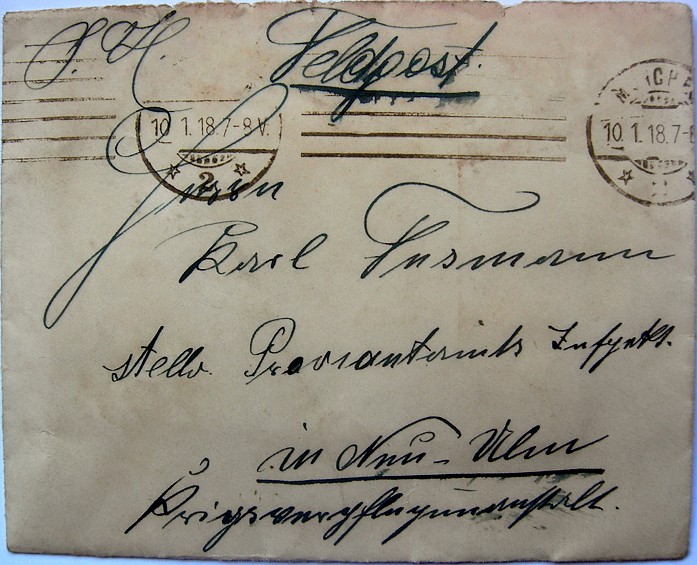 S. H. Feldpost.
10. 1. 18. 7-8 V. 10. 1. 18. 7-8
2
Herrn
Karl
stellv. Proviantamts Inspekt.
in Neu-Ulm
Kriegsverpflegungsanstalt.